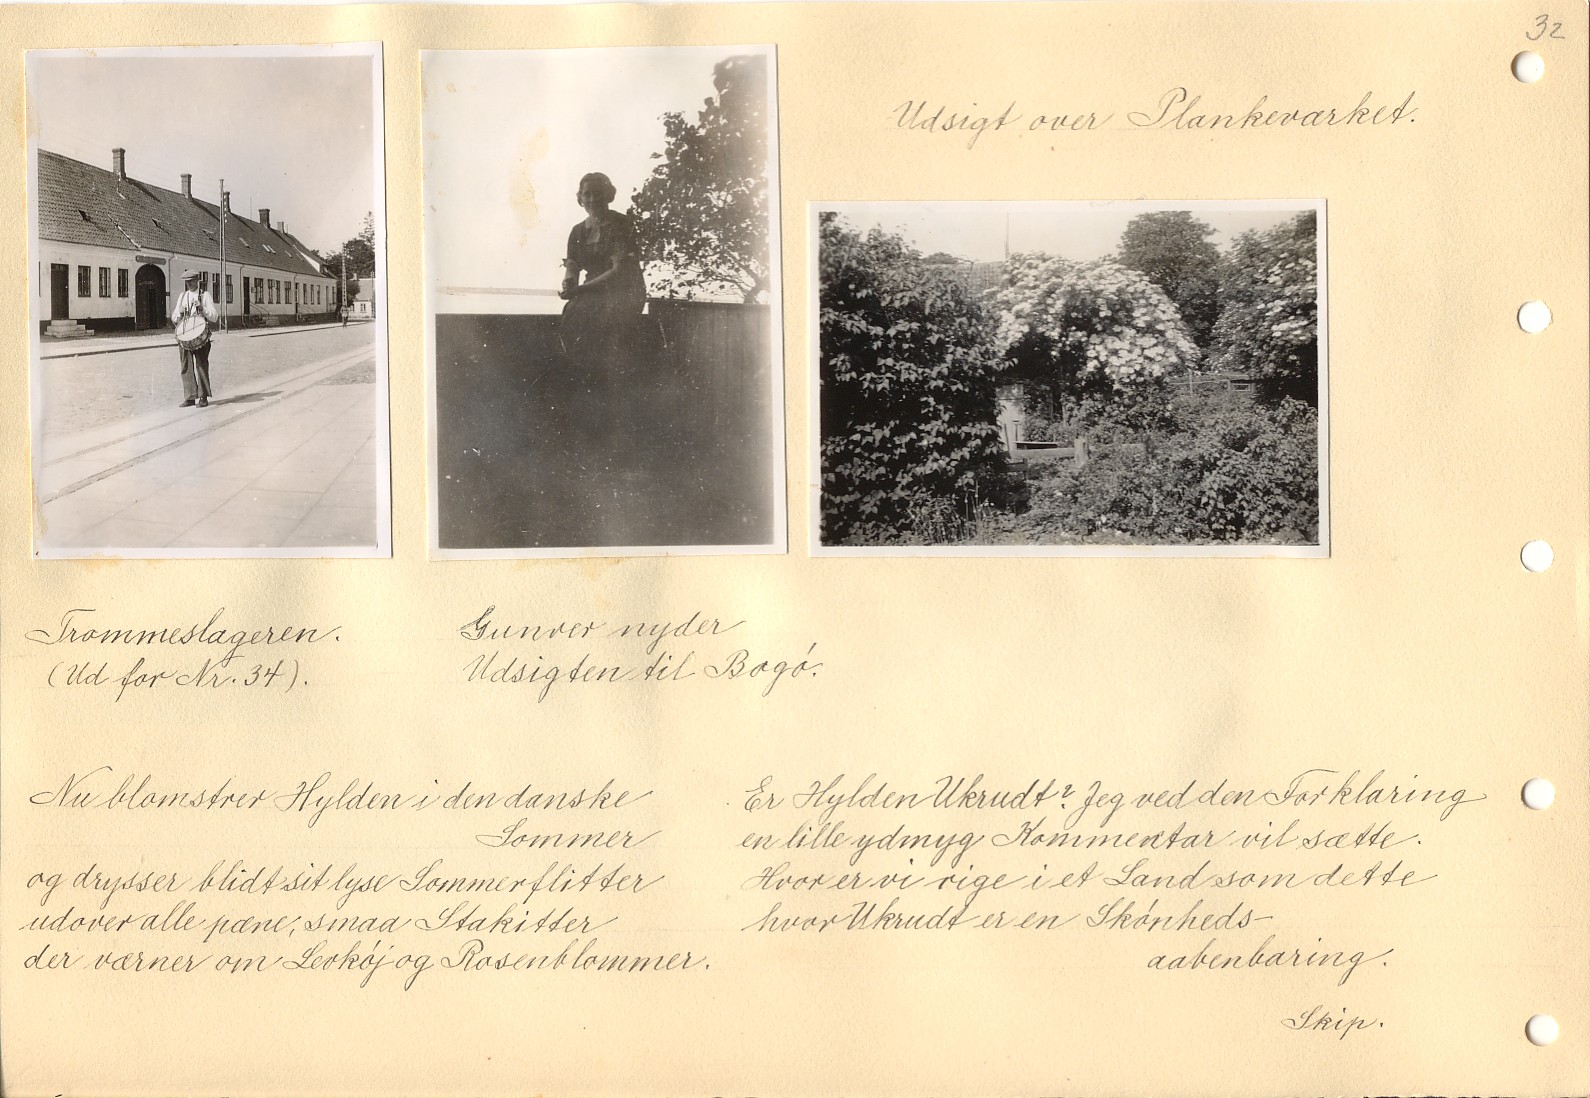 32
Udsigt over Plankeværket.
Trommeslageren.
(Ud for Nr. 34).
Gunver nyder
Udsigten til Bogó.
Nu blomstrer Hylden i den danske
Sommer
og drysser blidt sit lyse Sommerflitter
udover alle pæne, smaa Stakitter
der værner om Levkøj og Rosenblommer.
Er Hylden Ukrudt? Jeg ved den Forklaring
en lille ydmyg Kommentar vil sætte.
Hvor er vi rige i et Land som dette
hvor Ukrudt er en Skónheds-
aabenbaring.
Skip.